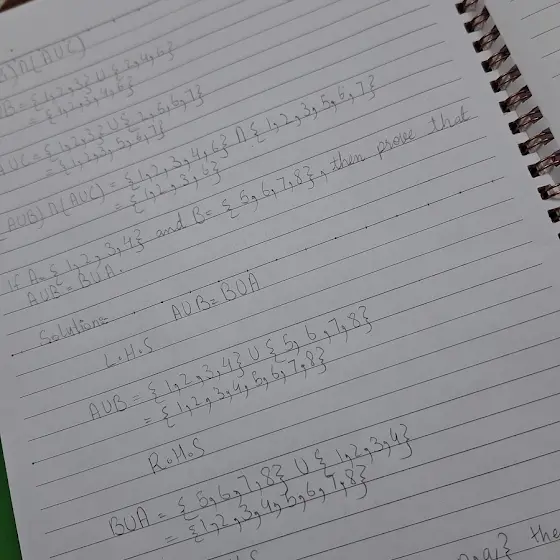 B)∩(AUC)
UB = {1,2,3} U {2,4,6}
= {1,2,3,4,6}
AUC = {1,2,3} U {2,5,6,7}
= {1,2,3,5,6,7}
(AUB)∩(AUC) = {1,2,3,4,6} ∩ {1,2,3,5,6,7}
= {1,2,3,6}
If A= {1,2,3,4} and B= {5,6,7,8}, then prove that
AUB = BUA.
Solution:
AUB = BUA
L.H.S
AUB = {1,2,3,4} U {5,6,7,8}
= {1,2,3,4,5,6,7,8}
R.H.S
BUA = {5,6,7,8} U {1,2,3,4}
= {1,2,3,4,5,6,7,8}
the